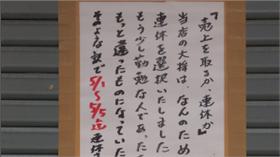 「売上を取るか、連休か」
当店の大将は、なんのため
連休を選択いたしました
もう少し勤勉な人であった
もっと違ったものになっていた
そのような訳で5/1〜5/5迄連休